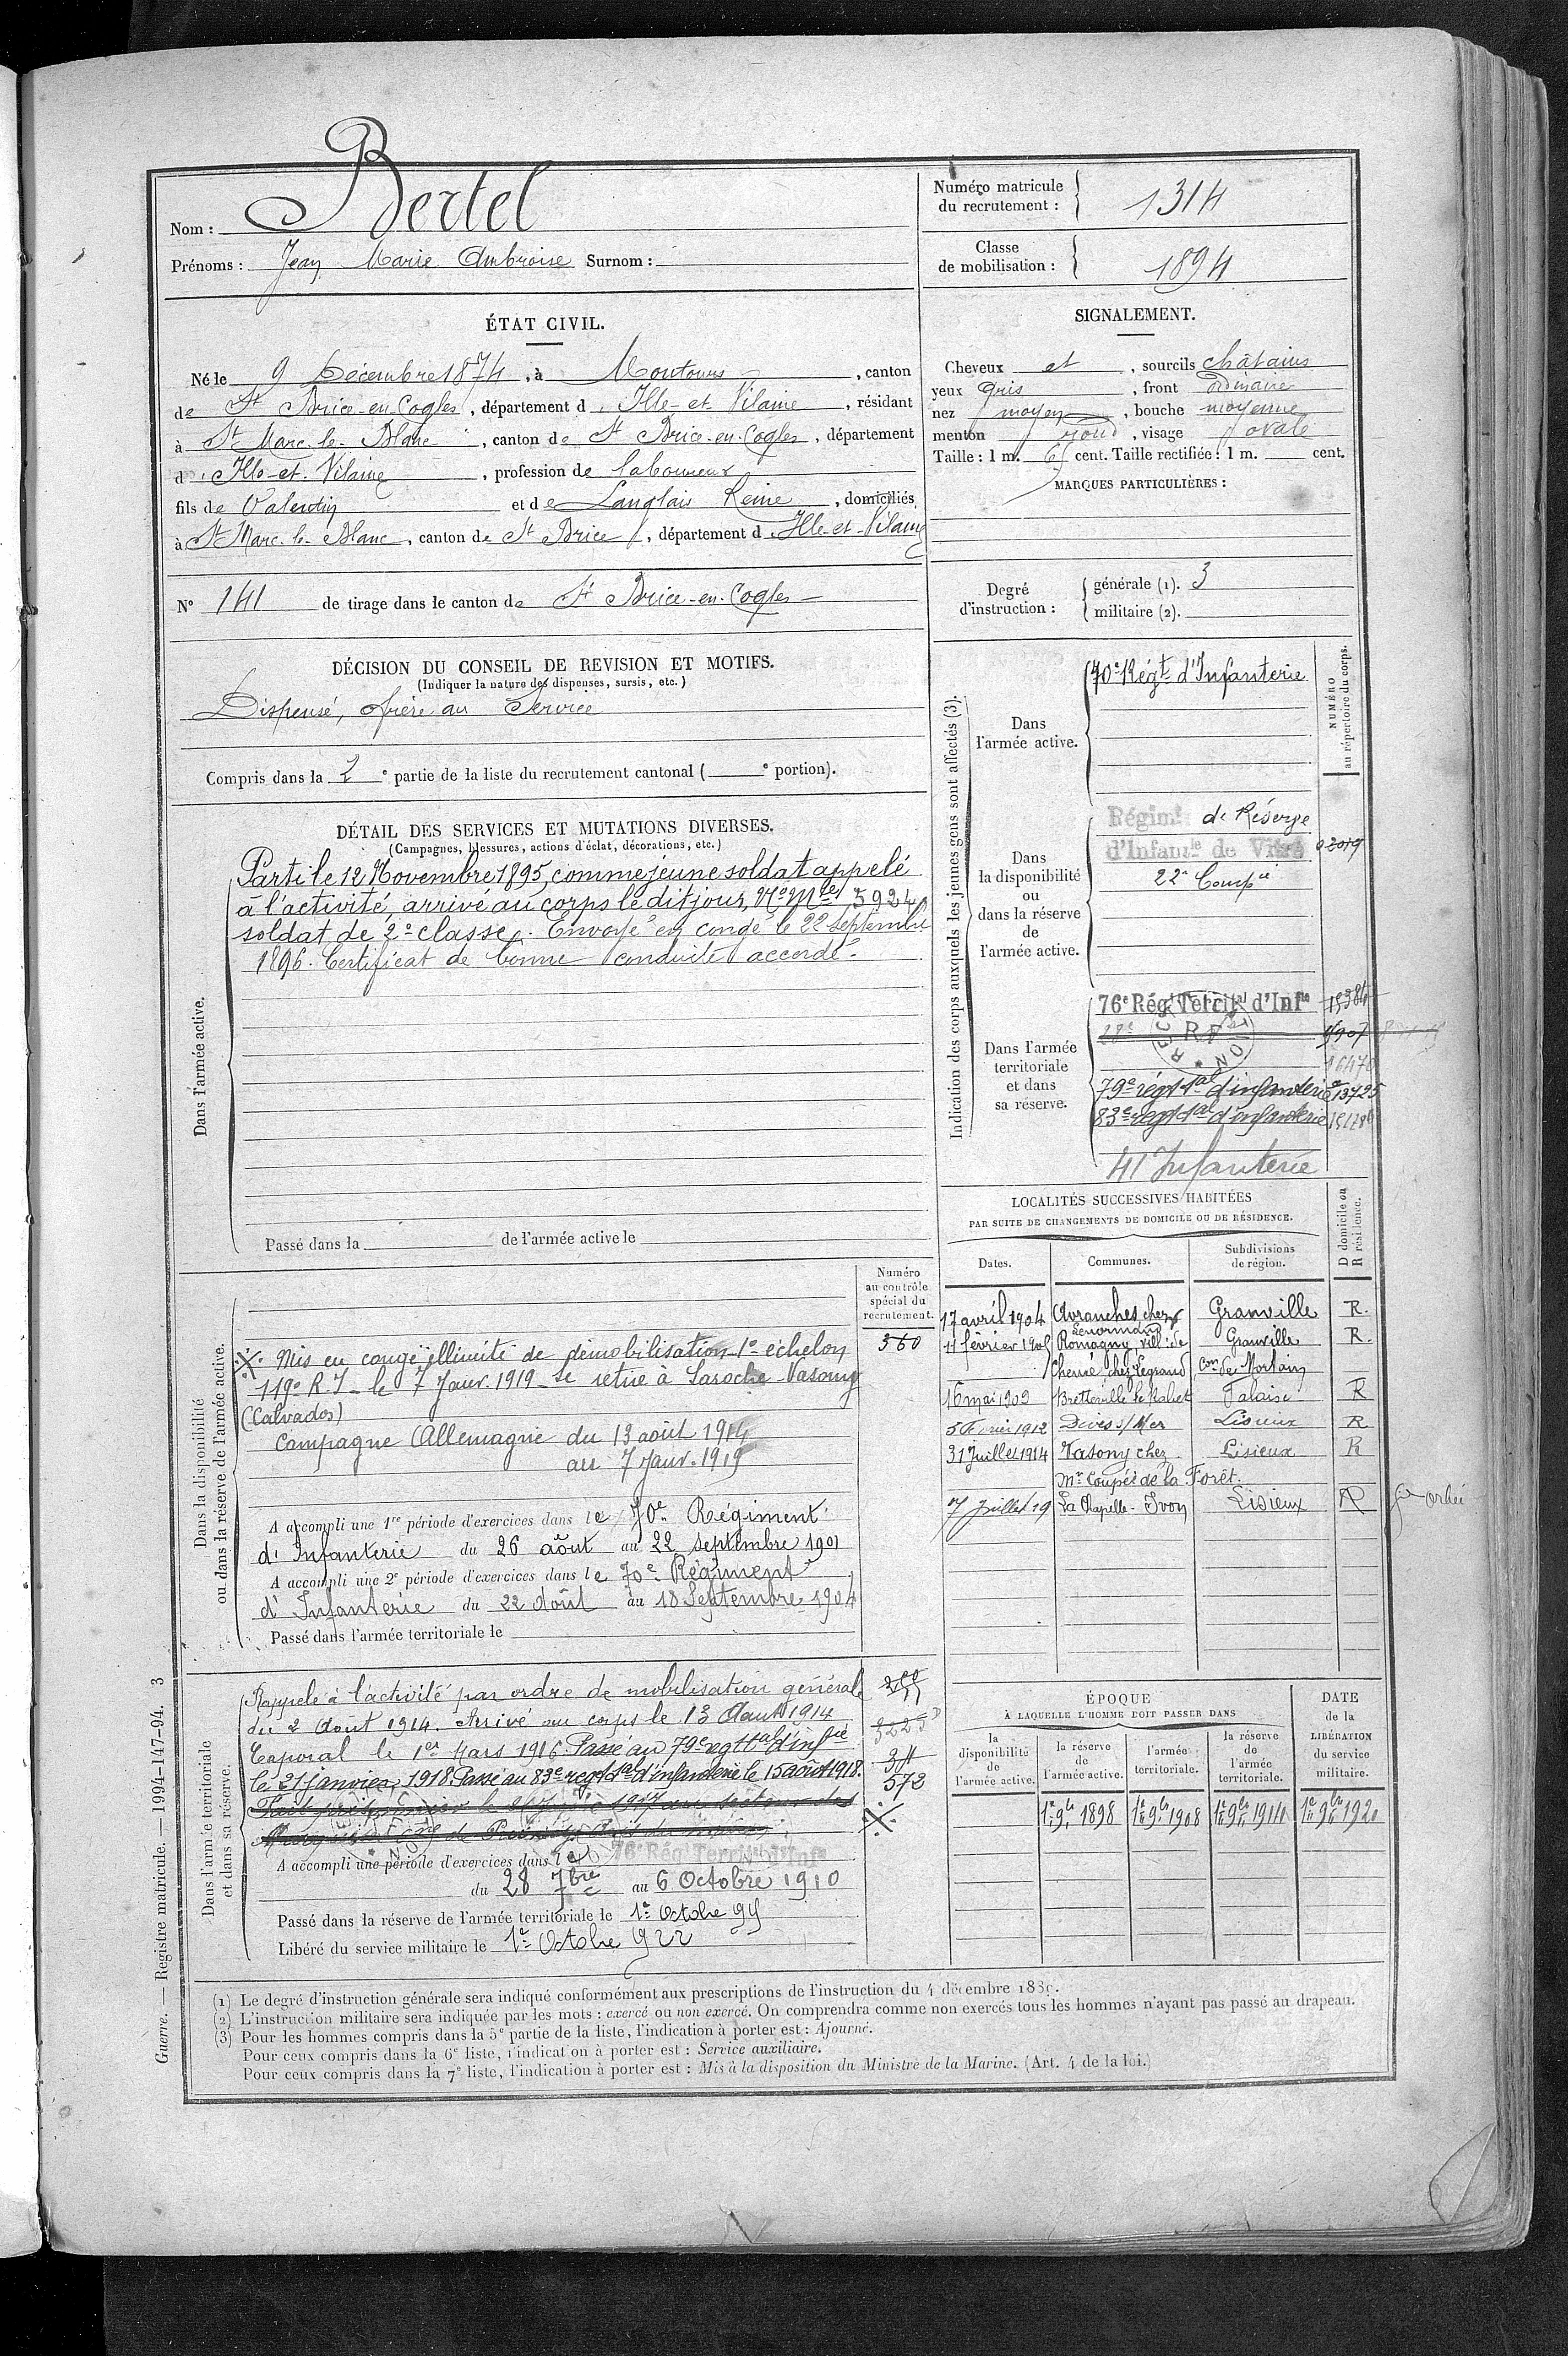 Nom : Bertel
Prénoms : Jean Marie Ambroise Surnom :
Numéro matricule du recrutement : 1314
Classe de mobilisation : 1894
ÉTAT CIVIL.
Né le 9 Décembre 1874, à Montours, canton
de St Brice-en-Cogles, département d'Ille-et-Vilaine, résidant
à St Marc-le-Blanc, canton de St Brice-en-Cogles, département
d'Ille-et-Vilaine, profession de laboureur
fils de Valentin et de Langlais Reine, domiciliés
à St Marc-le-Blanc, canton de St Brice, département d'Ille-et-Vilaine
N° 141 de tirage dans le canton de St Brice-en-Cogles
SIGNALEMENT.
Cheveux et , sourcils châtains
yeux gris , front ordinaire
nez moyen , bouche moyenne
menton rond , visage ovale
Taille : 1 m. 65 cent. Taille rectifiée : 1 m. cent.
MARQUES PARTICULIÈRES :
Degré d'instruction :
générale (1). 3
militaire (2).
DÉCISION DU CONSEIL DE REVISION ET MOTIFS.
(Indiquer la nature des dispenses, sursis, etc.)
Dispensé, frère au Service
Compris dans la 2e partie de la liste du recrutement cantonal ( e portion).
DÉTAIL DES SERVICES ET MUTATIONS DIVERSES.
(Campagnes, blessures, actions d'éclat, décorations, etc.)
Dans l'armée active.
Parti le 12 Novembre 1895, comme jeune soldat appelé
à l'activité, arrivé au corps le dit jour, No Mle 5924
soldat de 2e classe. Envoyé en congé le 22 Septembre
1896. Certificat de bonne conduite accordé.
Passé dans la de l'armée active le
Indication des corps auxquels les jeunes gens sont affectés (3).
NUMÉRO au répertoire du corps.
Dans l'armée active.
70e Régt d'Infanterie
Dans la disponibilité ou dans la réserve de l'armée active.
Régimt de Réserve
d'Infanrie de Vitré 02019
22e Compie
Dans l'armée territoriale et dans sa réserve.
76e Rég Territ d'Infie 15384
28e
79e régt tal d'infanterie 13725
83e régt tal d'infanterie
41 Infanterie
LOCALITÉS SUCCESSIVES HABITÉES
PAR SUITE DE CHANGEMENTS DE DOMICILE OU DE RÉSIDENCE.
Dates. Communes. Subdivisions de région. D domicile ou R résidence.
17 avril 1904 Avranches chez Lenormand Granville R.
11 février 1905 Romagny vill. de Granville R.
Cherné chez Legrand con de Mortain
16 mai 1909 Bretteville le Rabet Falaise R
5 Février 1912 Dives s/Mer Lisieux R
31 Juillet 1914 Vasony chez Lisieux R
Mr Coupée de la Forêt.
7 Juillet 19 La Chapelle-Yvon Lisieux R
Dans la disponibilité ou dans la réserve de l'armée active.
Numéro au contrôle spécial du recrutement.
360
Mis en congé illimité de démobilisation 1e échelon
119e R.I. le 7 Janv. 1919. Se retire à Laroche-Vasouy
(Calvados)
Campagne Allemagne du 13 août 1914
au 7 Janv. 1919
A accompli une 1re période d'exercices dans le 70e Régiment
d'Infanterie du 26 août au 22 septembre 1901
A accompli une 2e période d'exercices dans le 70e Régiment
d'Infanterie du 22 Août au 18 Septembre 1904
Passé dans l'armée territoriale le
Dans l'armée territoriale et dans sa réserve.
Rappelé à l'activité par ordre de mobilisation générale
du 2 Août 1914. Arrivé au corps le 13 Août 1914
Caporal le 1er Mars 1916. Passé au 79e régt tal d'infie
le 21 janvier 1918. Passé au 83e régt tal d'infanterie le 15 août 1918.
572
A accompli une période d'exercices dans le 76e Rég Territal d'Infie
du 28 7bre au 6 Octobre 1910
Passé dans la réserve de l'armée territoriale le 1er Octobre 
Libéré du service militaire le 1er Octobre 922
ÉPOQUE
À LAQUELLE L'HOMME DOIT PASSER DANS
la disponibilité de l'armée active. la réserve de l'armée active. l'armée territoriale. la réserve de l'armée territoriale.
DATE de la LIBÉRATION du service militaire.
1er 9bre 1898 1er 9bre 1908 1er 9bre 1914 1er 9bre 1920
(1) Le degré d'instruction générale sera indiqué conformément aux prescriptions de l'instruction du 4 décembre 1889.
(2) L'instruction militaire sera indiquée par les mots : exercé ou non exercé. On comprendra comme non exercés tous les hommes n'ayant pas passé au drapeau.
(3) Pour les hommes compris dans la 5e partie de la liste, l'indication à porter est : Ajourné.
Pour ceux compris dans la 6e liste, l'indication à porter est : Service auxiliaire.
Pour ceux compris dans la 7e liste, l'indication à porter est : Mis à la disposition du Ministre de la Marine. (Art. 4 de la loi.)
Guerre. — Registre matricule. — 1994-147-94. 3